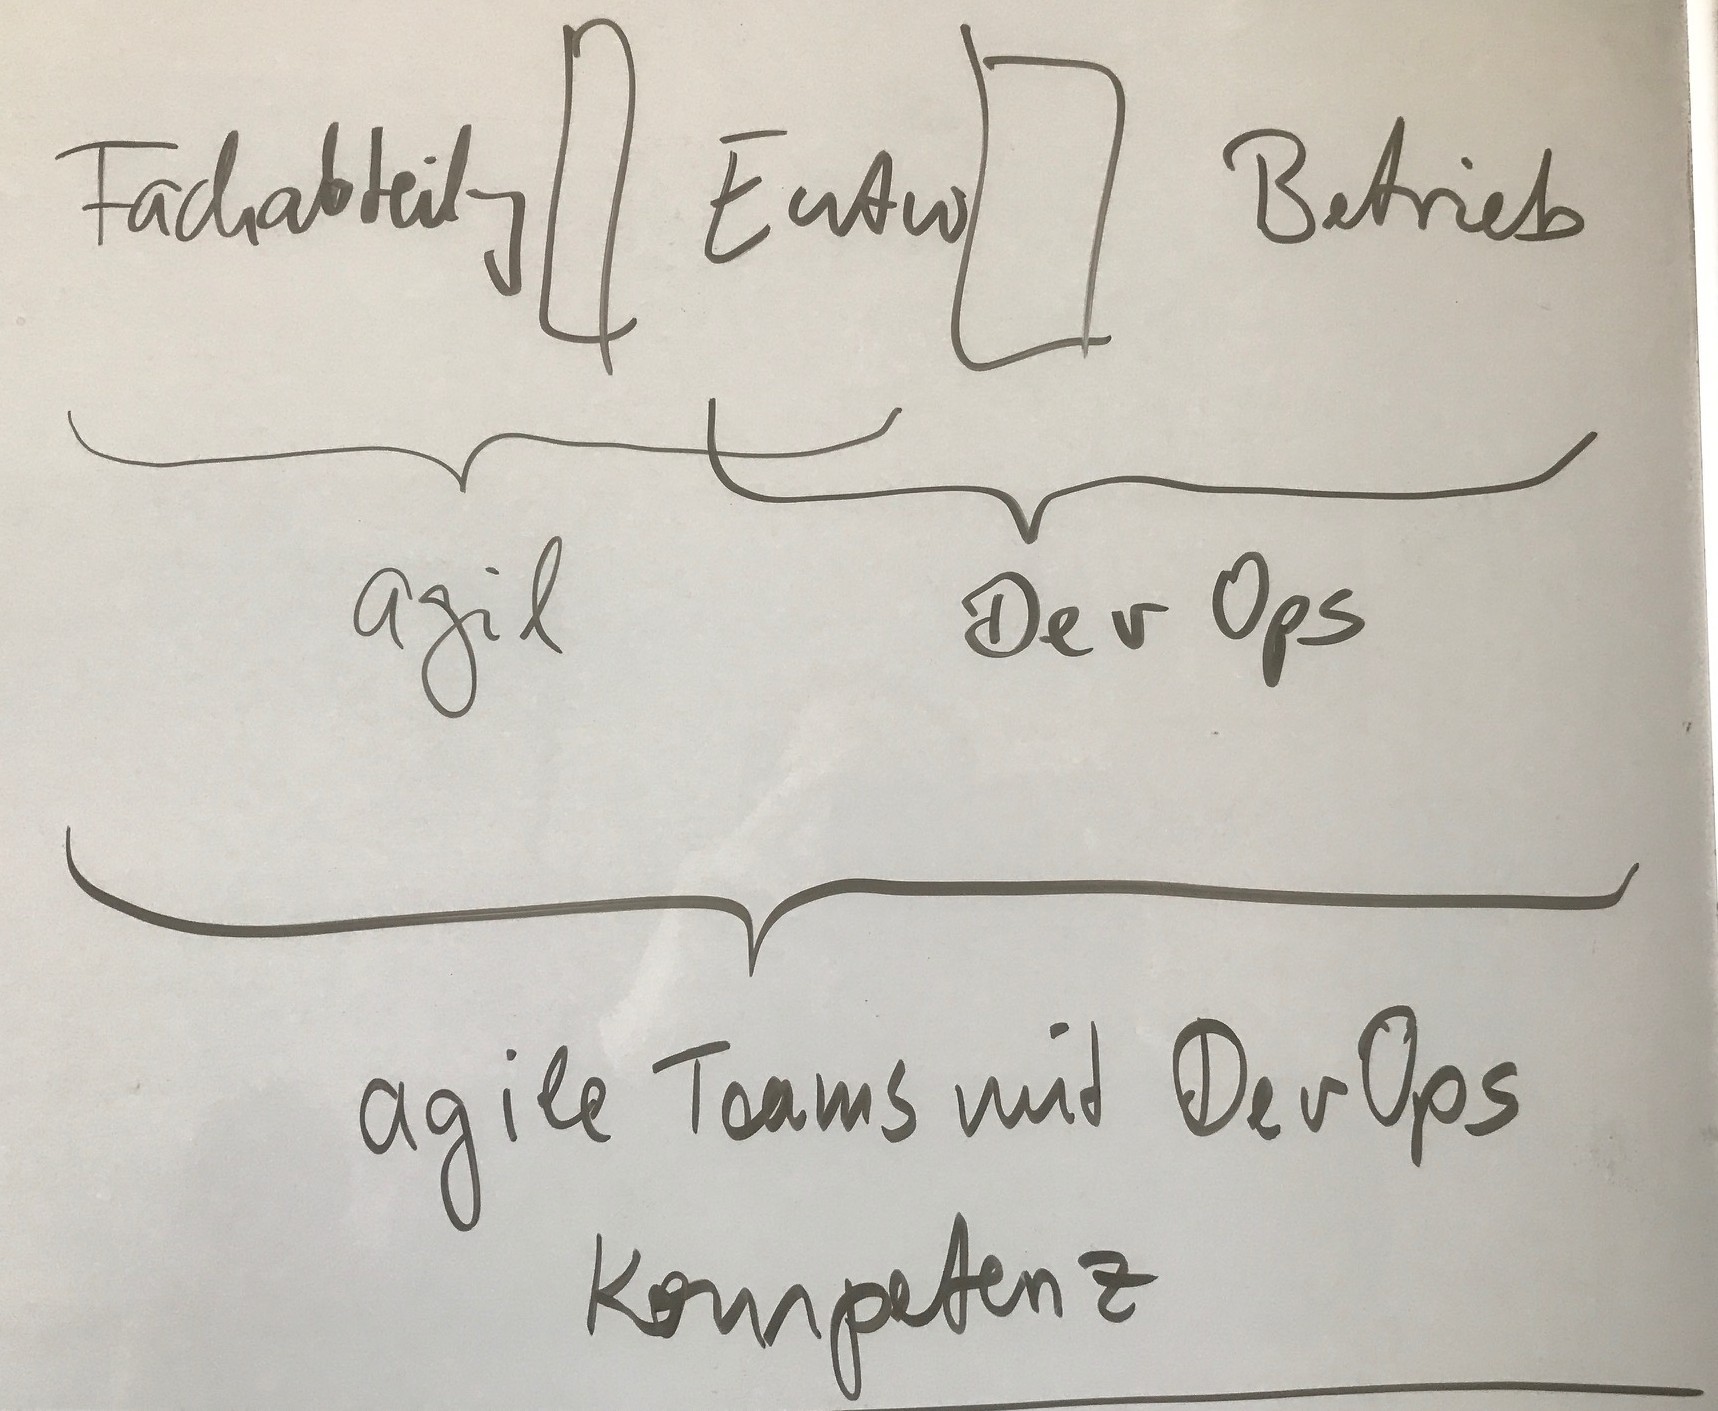 Fachabteilg Entw Betrieb
agil Dev Ops
agile Teams mit DevOps
Kompetenz